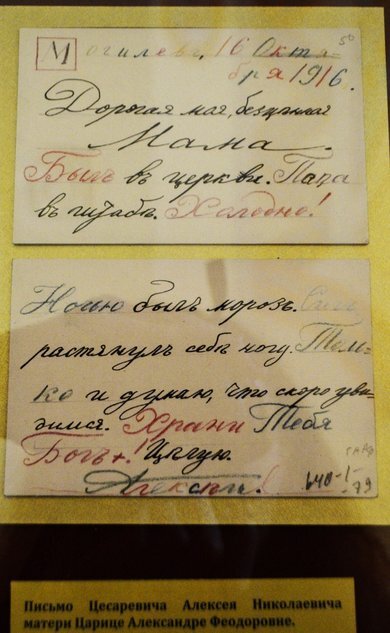 Могилевъ. 16 Октя-
бря 1916.
50
Дорогая моя, безцѣнная
Мама.
Былъ въ церкви. Папа
въ штабѣ. Холодно!
Ночью былъ морозъ.
растянулъ себѣ ногу. Толь-
ко и думаю, что скоро уви-
димся. Храни Тебя
Богъ+! Цѣлую.
Алексѣй.
640-1-
79
Письмо Цесаревича Алексея Николаевича
матери Царице Александре Феодоровне.